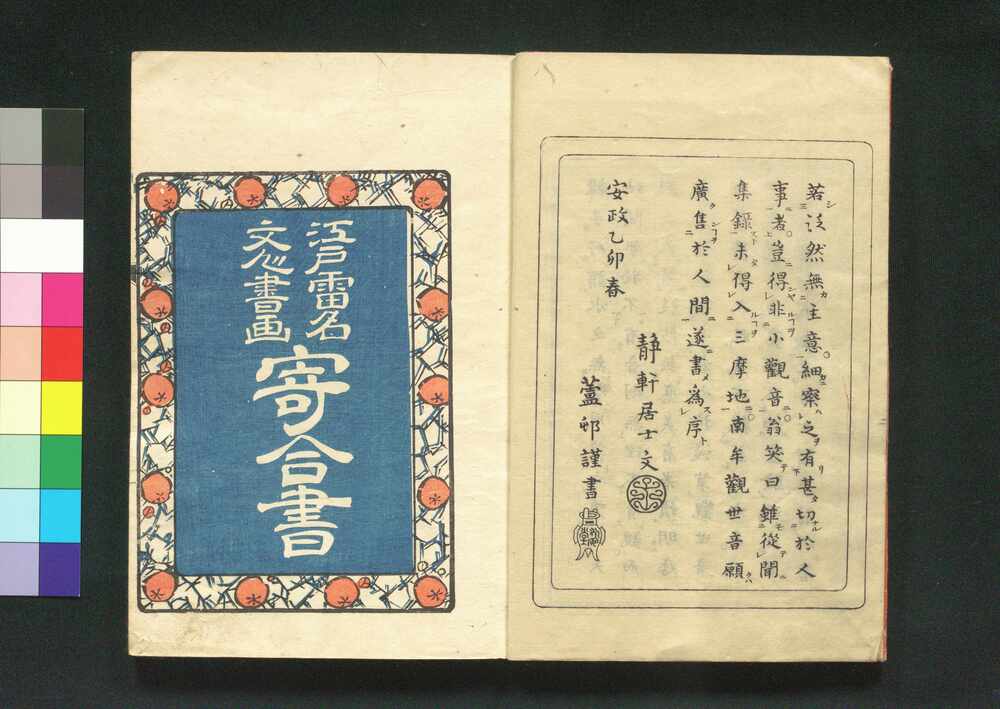 若泛然無主意細察之有甚切於人
事者豈得非小觀音翁笑曰雖從聞
集録未得入三摩地南牟觀世音願
廣售於人間遂書為序
安政乙卯春
靜軒居士文
蘆邨謹書
江戸雷名
文人書画
寄合書